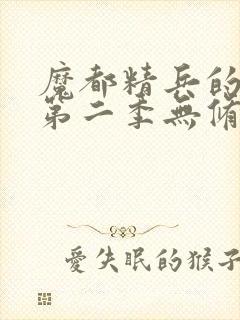 魔都精兵的
第二季無脩
愛失眠的猴子